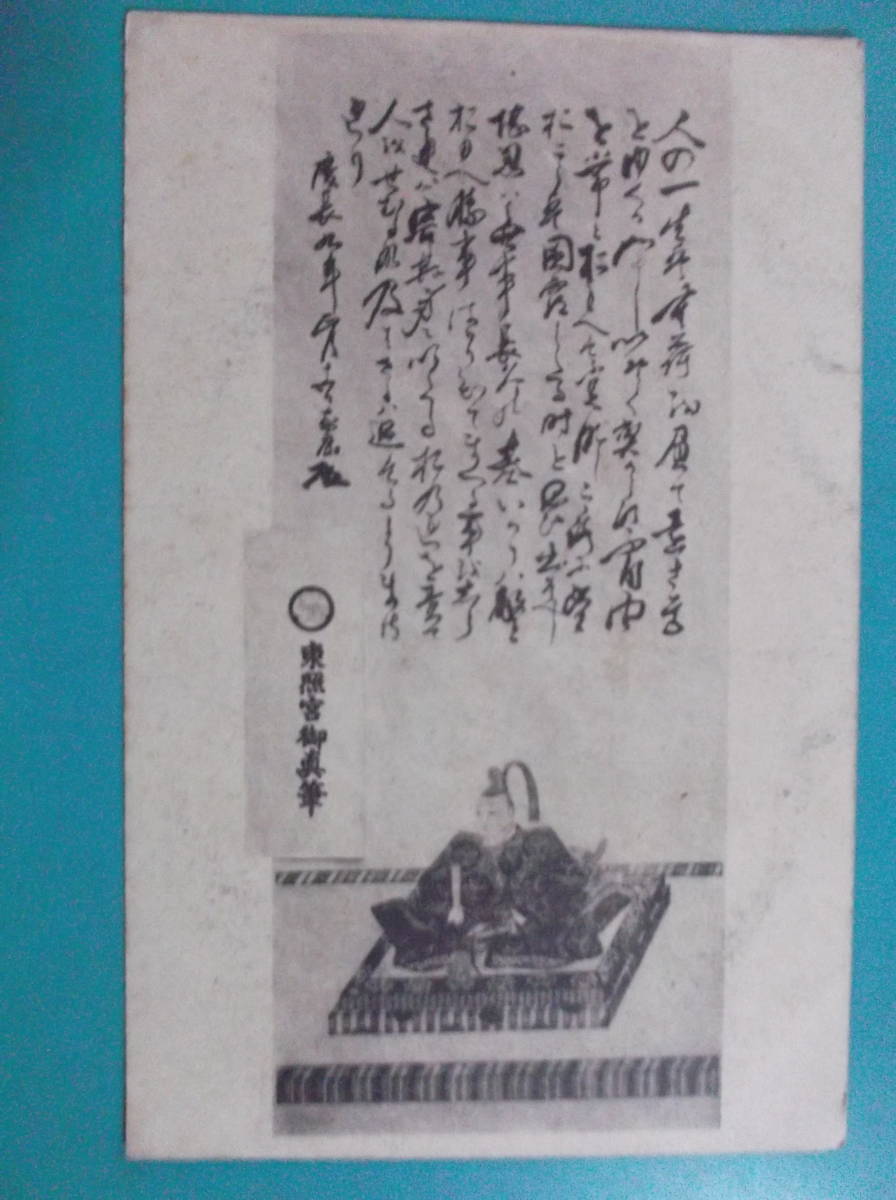 人の一生は重荷を負て遠き道
をゆくか如しいそくへからす不自由
を常とおもへは不足なしこゝろに望
おこらは困窮したる時を思ひ出すへし
堪忍は無事長久の基いかりは敵と
おもへ勝事はかり知てまくる事をしら
されは害其身にいたるおのれを責て
人をせむるな及はさるは過たるよりまされ
るり
慶長九年 家康
東照宮御真筆